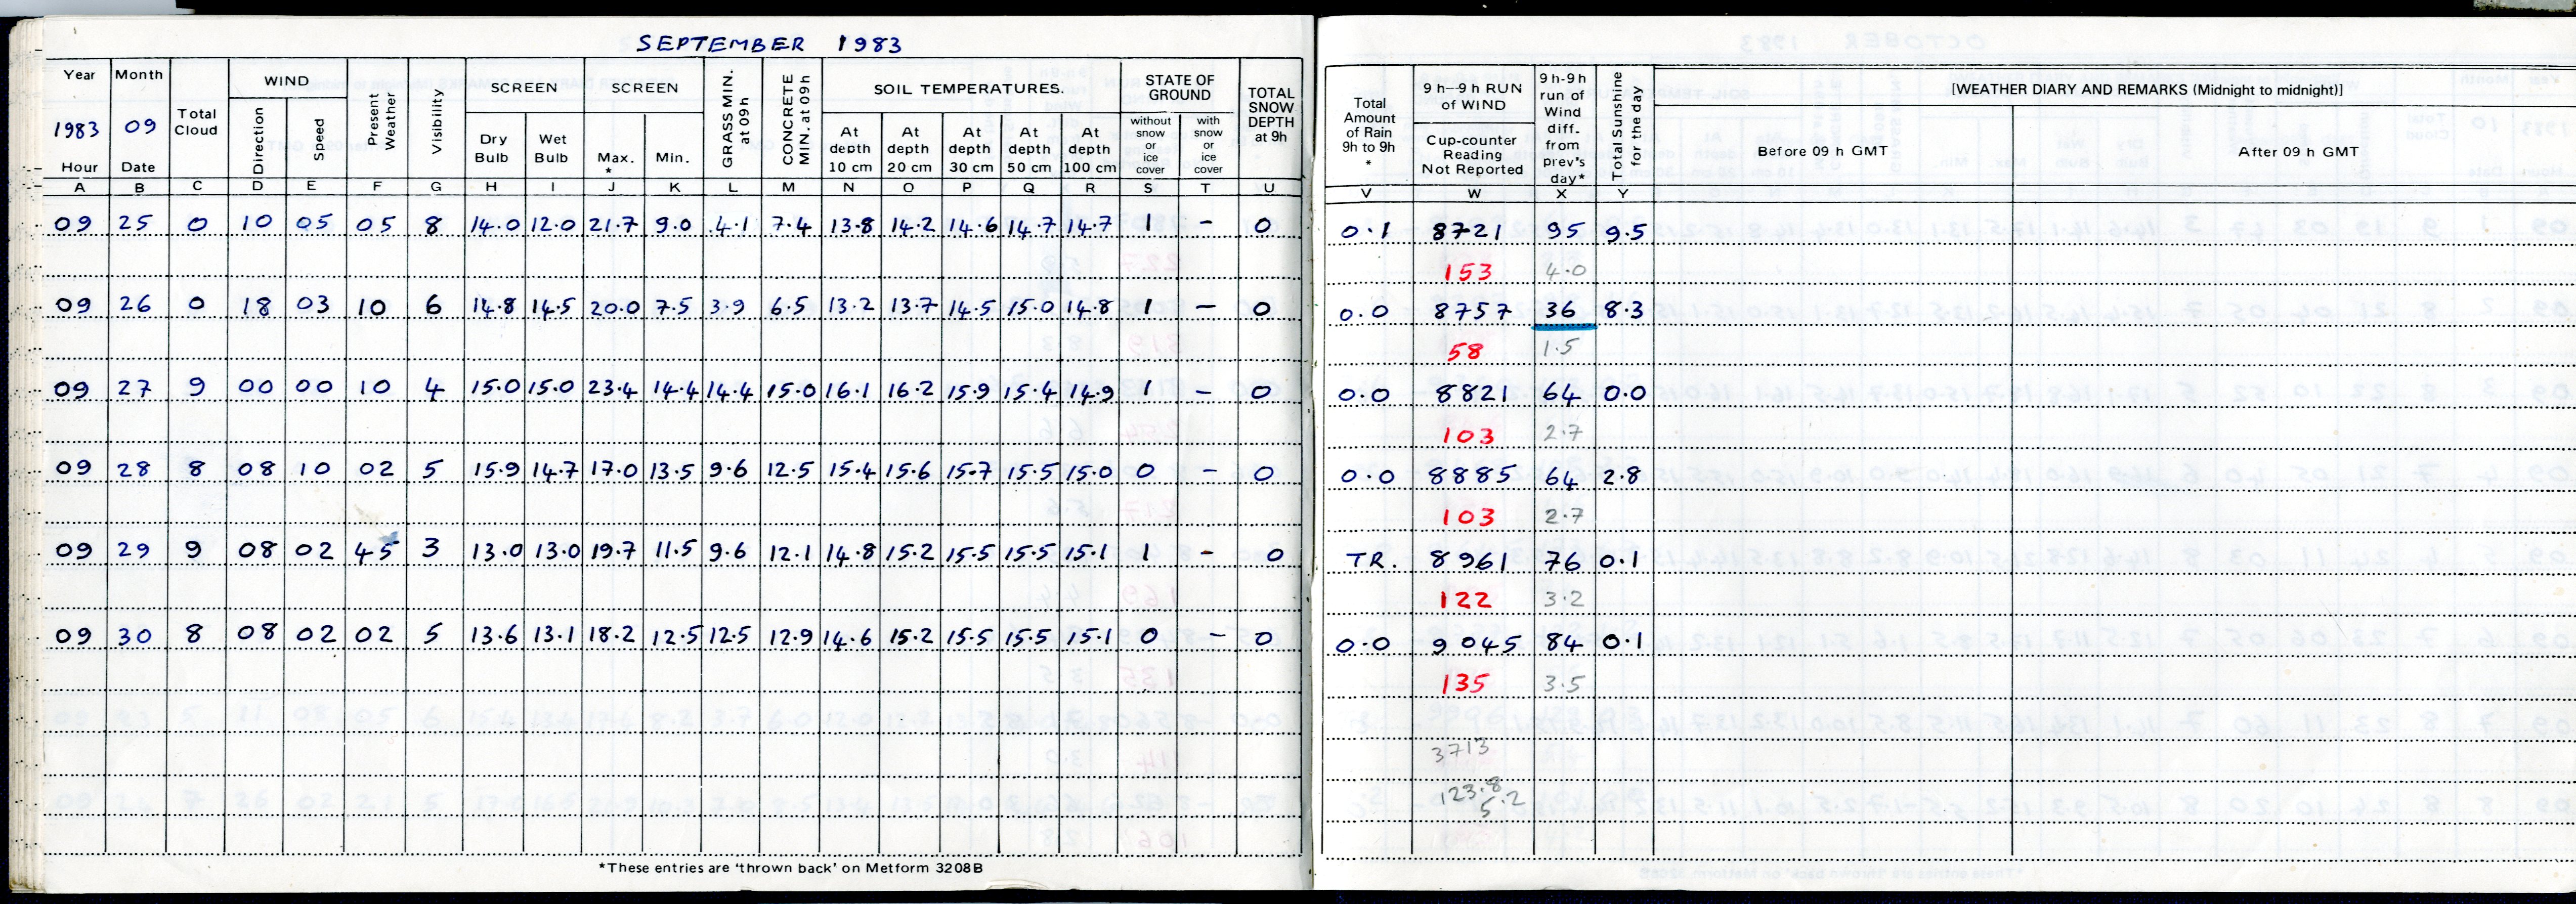 SEPTEMBER 1983
Year Month Total Cloud WIND Present Weather Visibility SCREEN SCREEN GRASS MIN. at 09h CONCRETE MIN. at 09h SOIL TEMPERATURES. STATE OF GROUND TOTAL SNOW DEPTH at 9h
1983 09 Direction Speed Dry Bulb Wet Bulb Max. * Min. At depth 10 cm At depth 20 cm At depth 30 cm At depth 50 cm At depth 100 cm without snow or ice cover with snow or ice cover
Hour Date
A B C D E F G H I J K L M N O P Q R S T U
09 25 0 10 05 05 8 14.0 12.0 21.7 9.0 4.1 7.4 13.8 14.2 14.6 14.7 14.7 1 – 0
09 26 0 18 03 10 6 14.8 14.5 20.0 7.5 3.9 6.5 13.2 13.7 14.5 15.0 14.8 1 – 0
09 27 9 00 00 10 4 15.0 15.0 23.4 14.4 14.4 15.0 16.1 16.2 15.9 15.4 14.9 1 – 0
09 28 8 08 10 02 5 15.9 14.7 17.0 13.5 9.6 12.5 15.4 15.6 15.7 15.5 15.0 0 – 0
09 29 9 08 02 45 3 13.0 13.0 19.7 11.5 9.6 12.1 14.8 15.2 15.5 15.5 15.1 1 – 0
09 30 8 08 02 02 5 13.6 13.1 18.2 12.5 12.5 12.9 14.6 15.2 15.5 15.5 15.1 0 – 0
*These entries are 'thrown back' on Metform 3208B
Total Amount of Rain 9h to 9h * 9 h–9 h RUN of WIND 9 h-9 h run of Wind diff. from prev's day* Total Sunshine for the day [WEATHER DIARY AND REMARKS (Midnight to midnight)]
Cup-counter Reading Not Reported Before 09 h GMT After 09 h GMT
V W X Y
0.1 8721 95 9.5
153 4.0
0.0 8757 36 8.3
58 1.5
0.0 8821 64 0.0
103 2.7
0.0 8885 64 2.8
103 2.7
TR. 8961 76 0.1
122 3.2
0.0 9045 84 0.1
135 3.5
3713
123.8
5.2